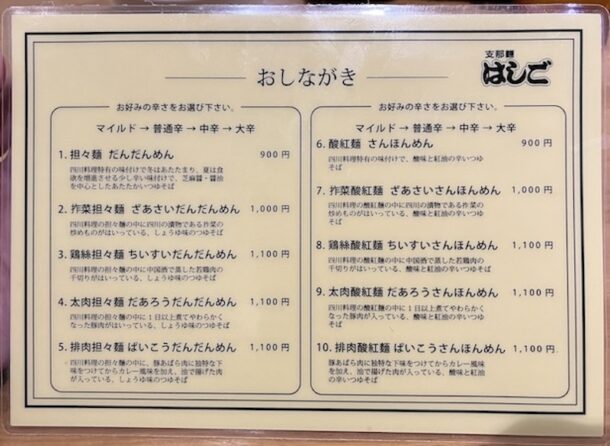 支那麵
はしご
おしながき
お好みの辛さをお選び下さい。
マイルド → 普通辛 → 中辛 → 大辛
1. 担々麺 だんだんめん 900円
四川料理特有の味付けで冬はあたたまり、夏は食
欲を増進させる少し辛い味付けで、芝麻醤・醤油
を中心としたあたたかいつゆそば
2. 搾菜担々麺 ざあさいだんだんめん 1,000円
四川料理の担々麺の中に四川の漬物である搾菜の
炒めものがはいっている、しょうゆ味のつゆそば
3. 鶏絲担々麺 ちいすいだんだんめん 1,100円
四川料理の担々麺の中に中国酒で蒸した若鶏肉の
千切りがはいっている、しょうゆ味のつゆそば
4. 太肉担々麺 だあろうだんだんめん 1,100円
四川料理の担々麺の中に1日以上煮てやわらかく
なった豚肉がはいっている、しょうゆ味のつゆそば
5. 排肉担々麺 ぱいこうだんだんめん 1,100円
四川料理の担々麺の中に、豚あばら肉に独特な下
味をつけてからカレー風味を加え、油で揚げた肉
が入っている、しょうゆ味のつゆそば
お好みの辛さをお選び下さい。
マイルド → 普通辛 → 中辛 → 大辛
6. 酸紅麺 さんほんめん 900円
四川料理特有の味付けで、酸味と紅油の辛いつゆ
そば
7. 搾菜酸紅麺 ざあさいさんほんめん 1,000円
四川料理の酸紅麺の中に四川の漬物である搾菜の
炒めものがはいっている、酸味と紅油の辛いつゆ
そば
8. 鶏絲酸紅麺 ちいすいさんほんめん 1,100円
四川料理の酸紅麺の中に中国酒で蒸した若鶏肉の
千切りがはいっている、酸味と紅油の辛いつゆそば
9. 太肉酸紅麺 だあろうさんほんめん 1,100円
四川料理の酸紅麺の中に1日以上煮てやわらかく
なった豚肉が入っている、酸味と紅油の辛いつゆ
そば
10. 排肉酸紅麺 ぱいこうさんほんめん 1,100円
豚あばら肉に独特な下味をつけてからカレー風味
を加え、油で揚げた肉が入っている、酸味と紅油
の辛いつゆそば